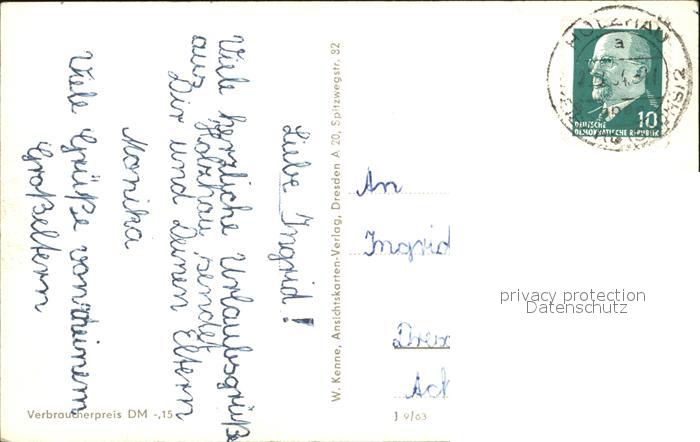 Liebe Ingrid!
Viele herzliche Urlaubsgrüße
aus Holzhau sendet
Dir und Deinen Eltern
Monika
Viele Grüße von deinem
Großeltern
Verbraucherpreis DM -,15
W. Kenne, Ansichtskarten-Verlag, Dresden A 20, Spitzwegstr. 82
J 9/63
HOLZHAU
a
10
DEUTSCHE
DEMOKRATISCHE REPUBLIK
An
Ingrid
Dres
Ack
privacy protection
Datenschutz